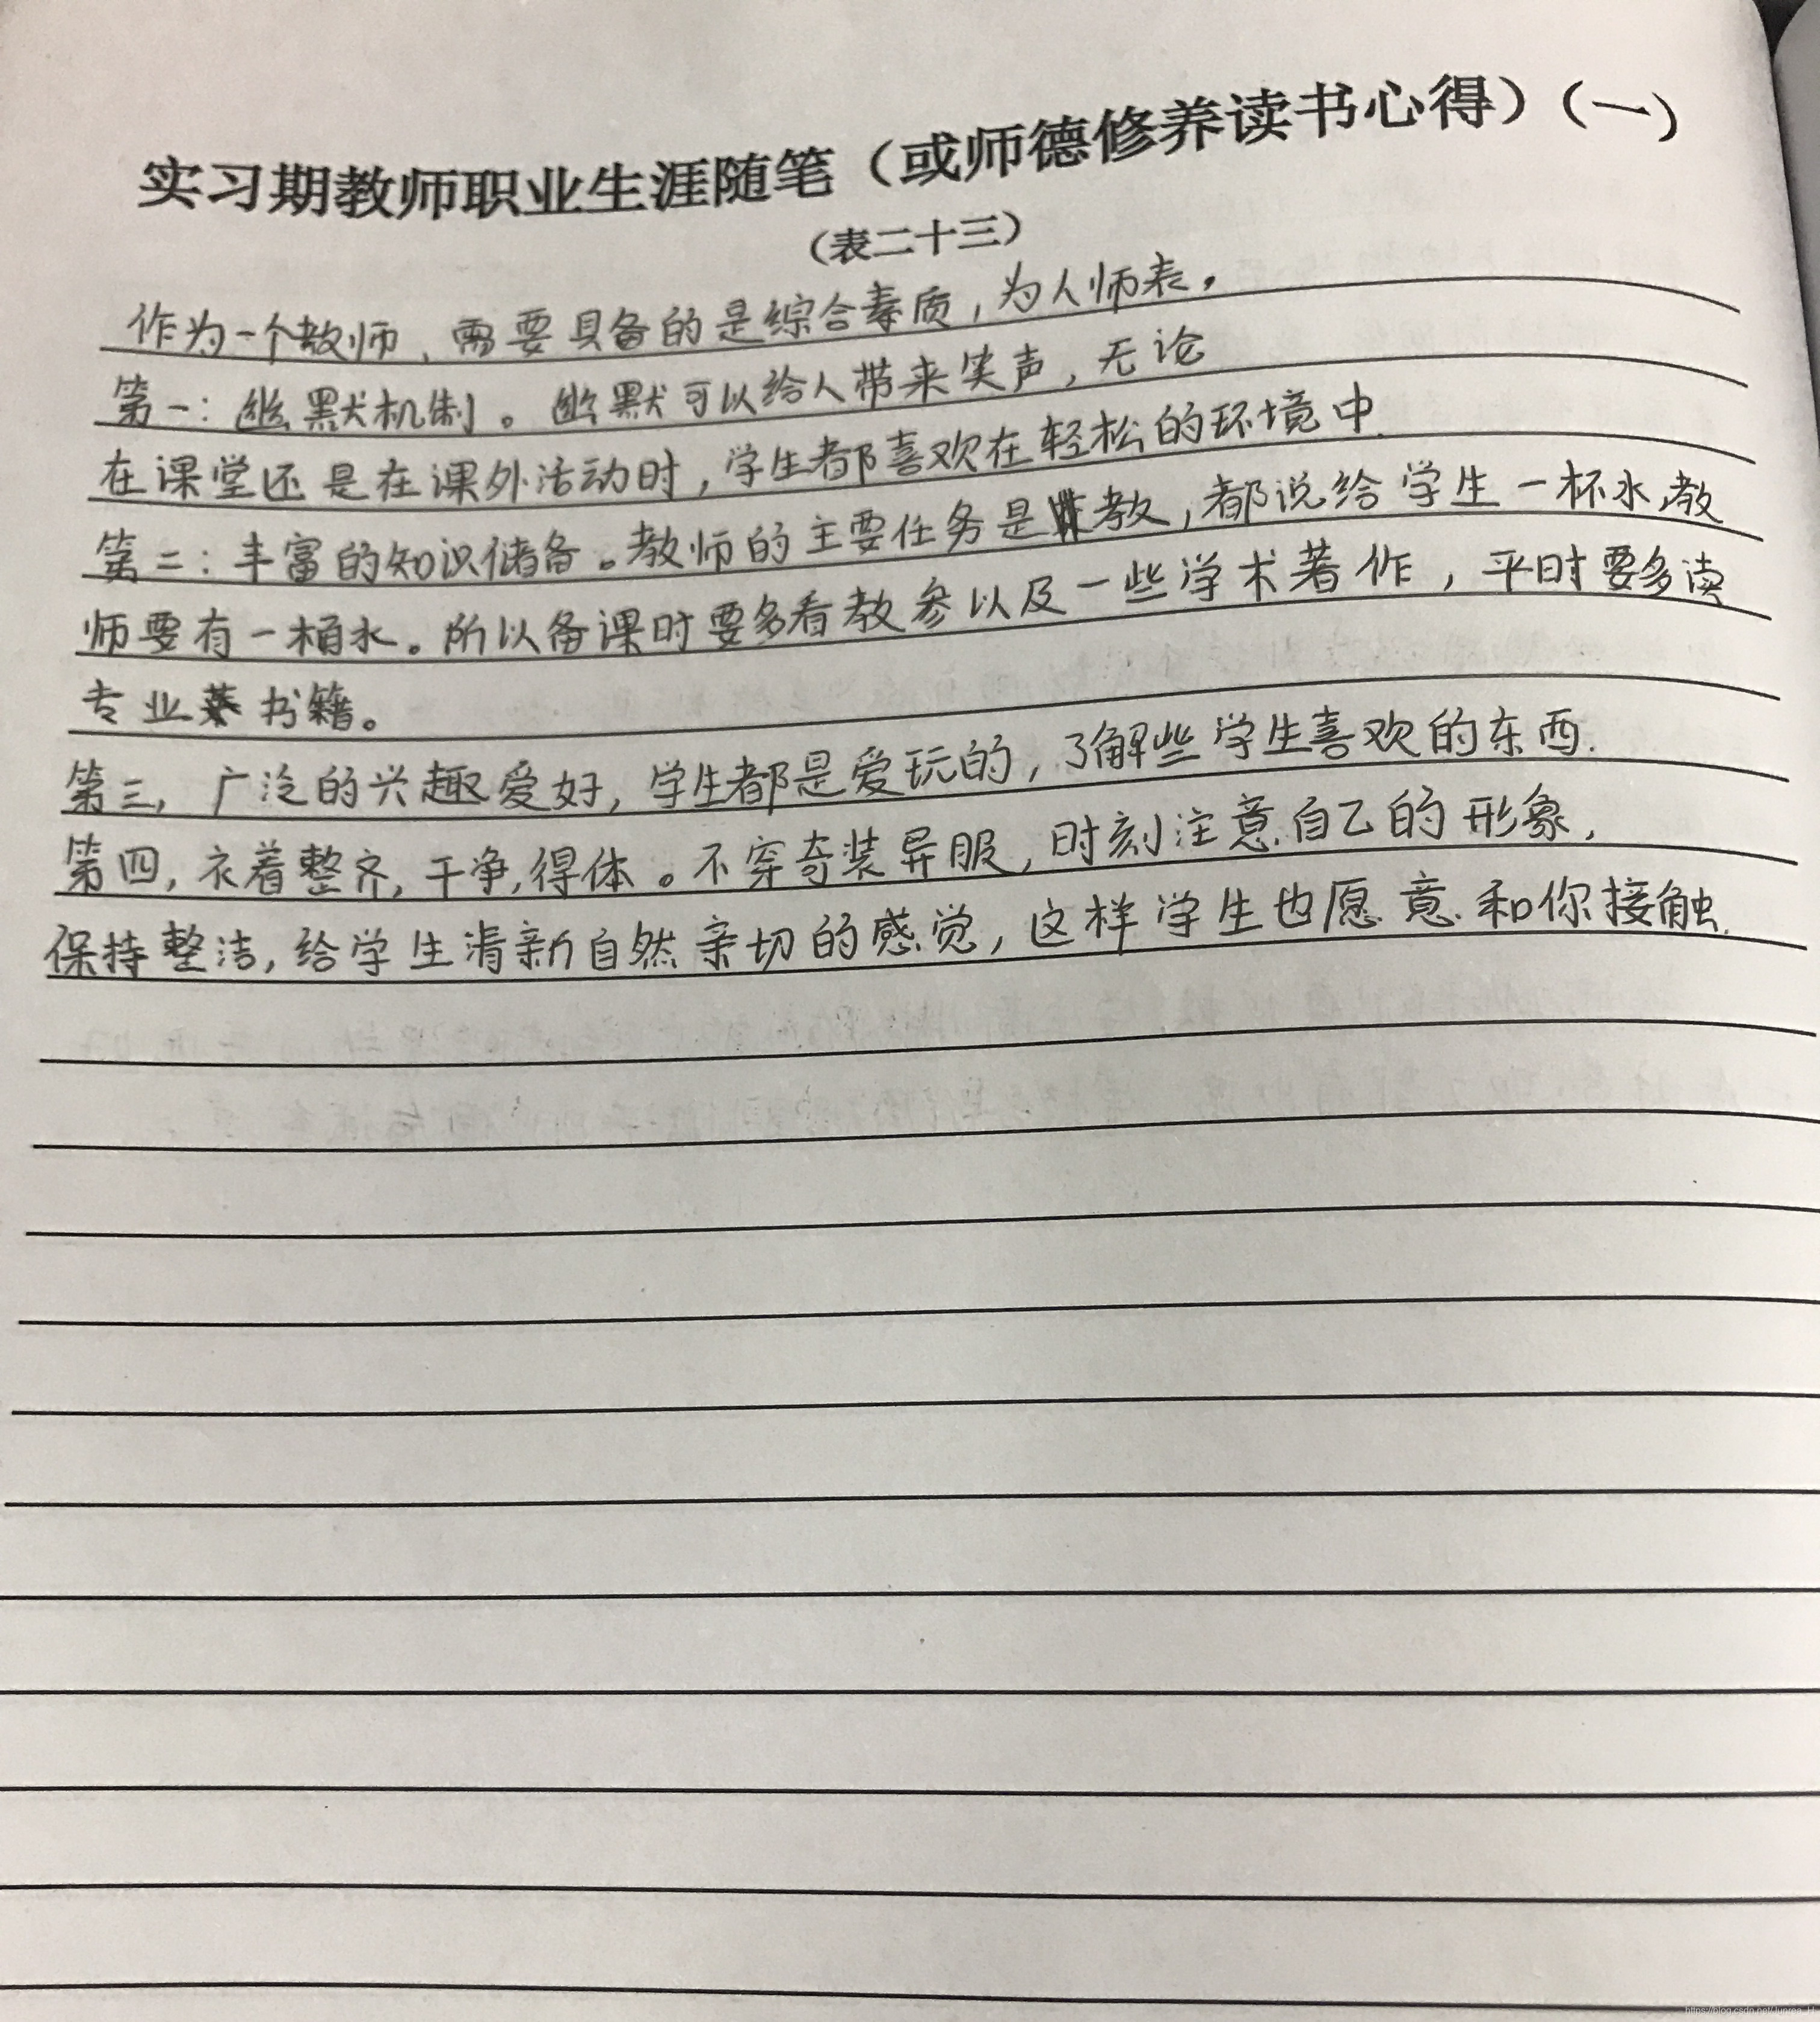 实习期教师职业生涯随笔（或师德修养读书心得）（一）
（表二十三）
作为一个教师，需要具备的是综合素质，为人师表。
第一：幽默机制。幽默可以给人带来笑声，无论
在课堂还是在课外活动时，学生都喜欢在轻松的环境中.
第二：丰富的知识储备。教师的主要任务是教，都说给学生一杯水，教
师要有一桶水。所以备课时要多看教参以及一些学术著作，平时要多读
专业书籍。
第三，广泛的兴趣爱好，学生都是爱玩的，了解些学生喜欢的东西.
第四，衣着整齐，干净，得体。不穿奇装异服，时刻注意自己的形象，
保持整洁，给学生清新自然亲切的感觉，这样学生也愿意和你接触.